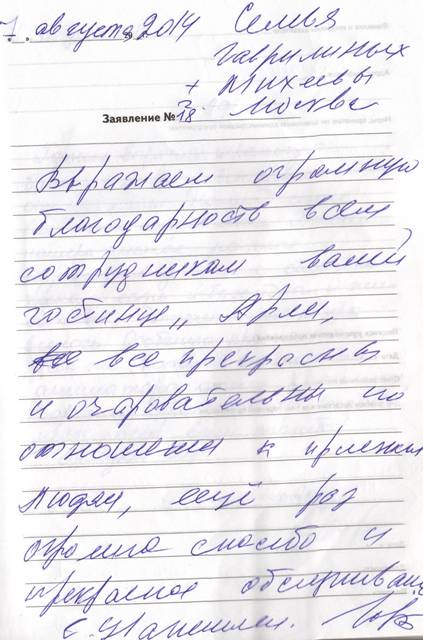 7. августа, 2014 Семья
Гаврилиных
+ Михеевы
г. Москва
Заявление № 18.
Выражаем огромную
благодарность всем
сотрудникам вашей
гостиницы „Арли,
все прекрасны
и очаровательны по
отношения к приезжим
людям, ещё раз
огромное спасибо и
прекрасное обслуживание